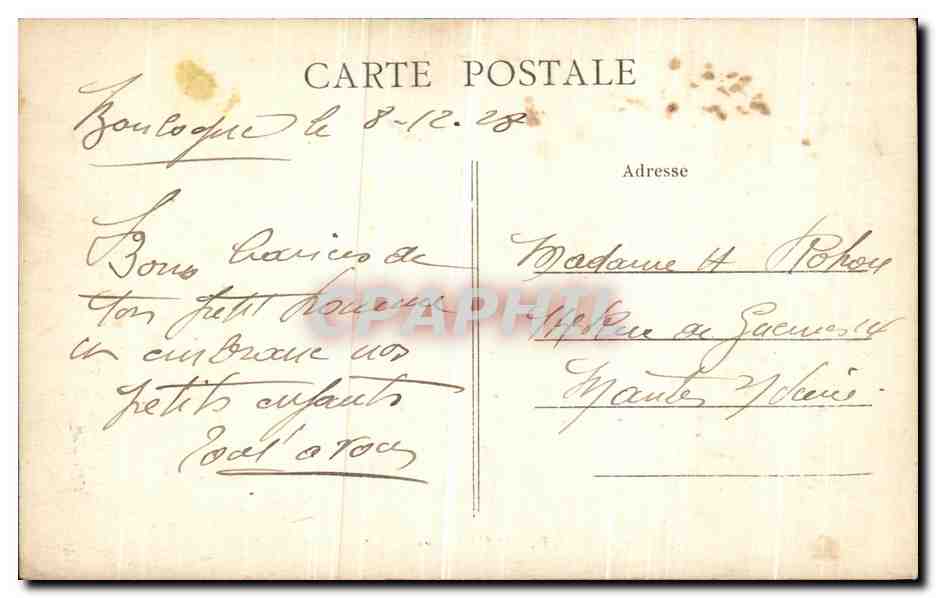 CARTE POSTALE
Boulogne le 8-12.28
Adresse
Bons baisers de
ton petit homme
embrasse nos
petits enfants
Tout à vous
Madame H Rohou
Rue de
Mantes
CPAPHIL